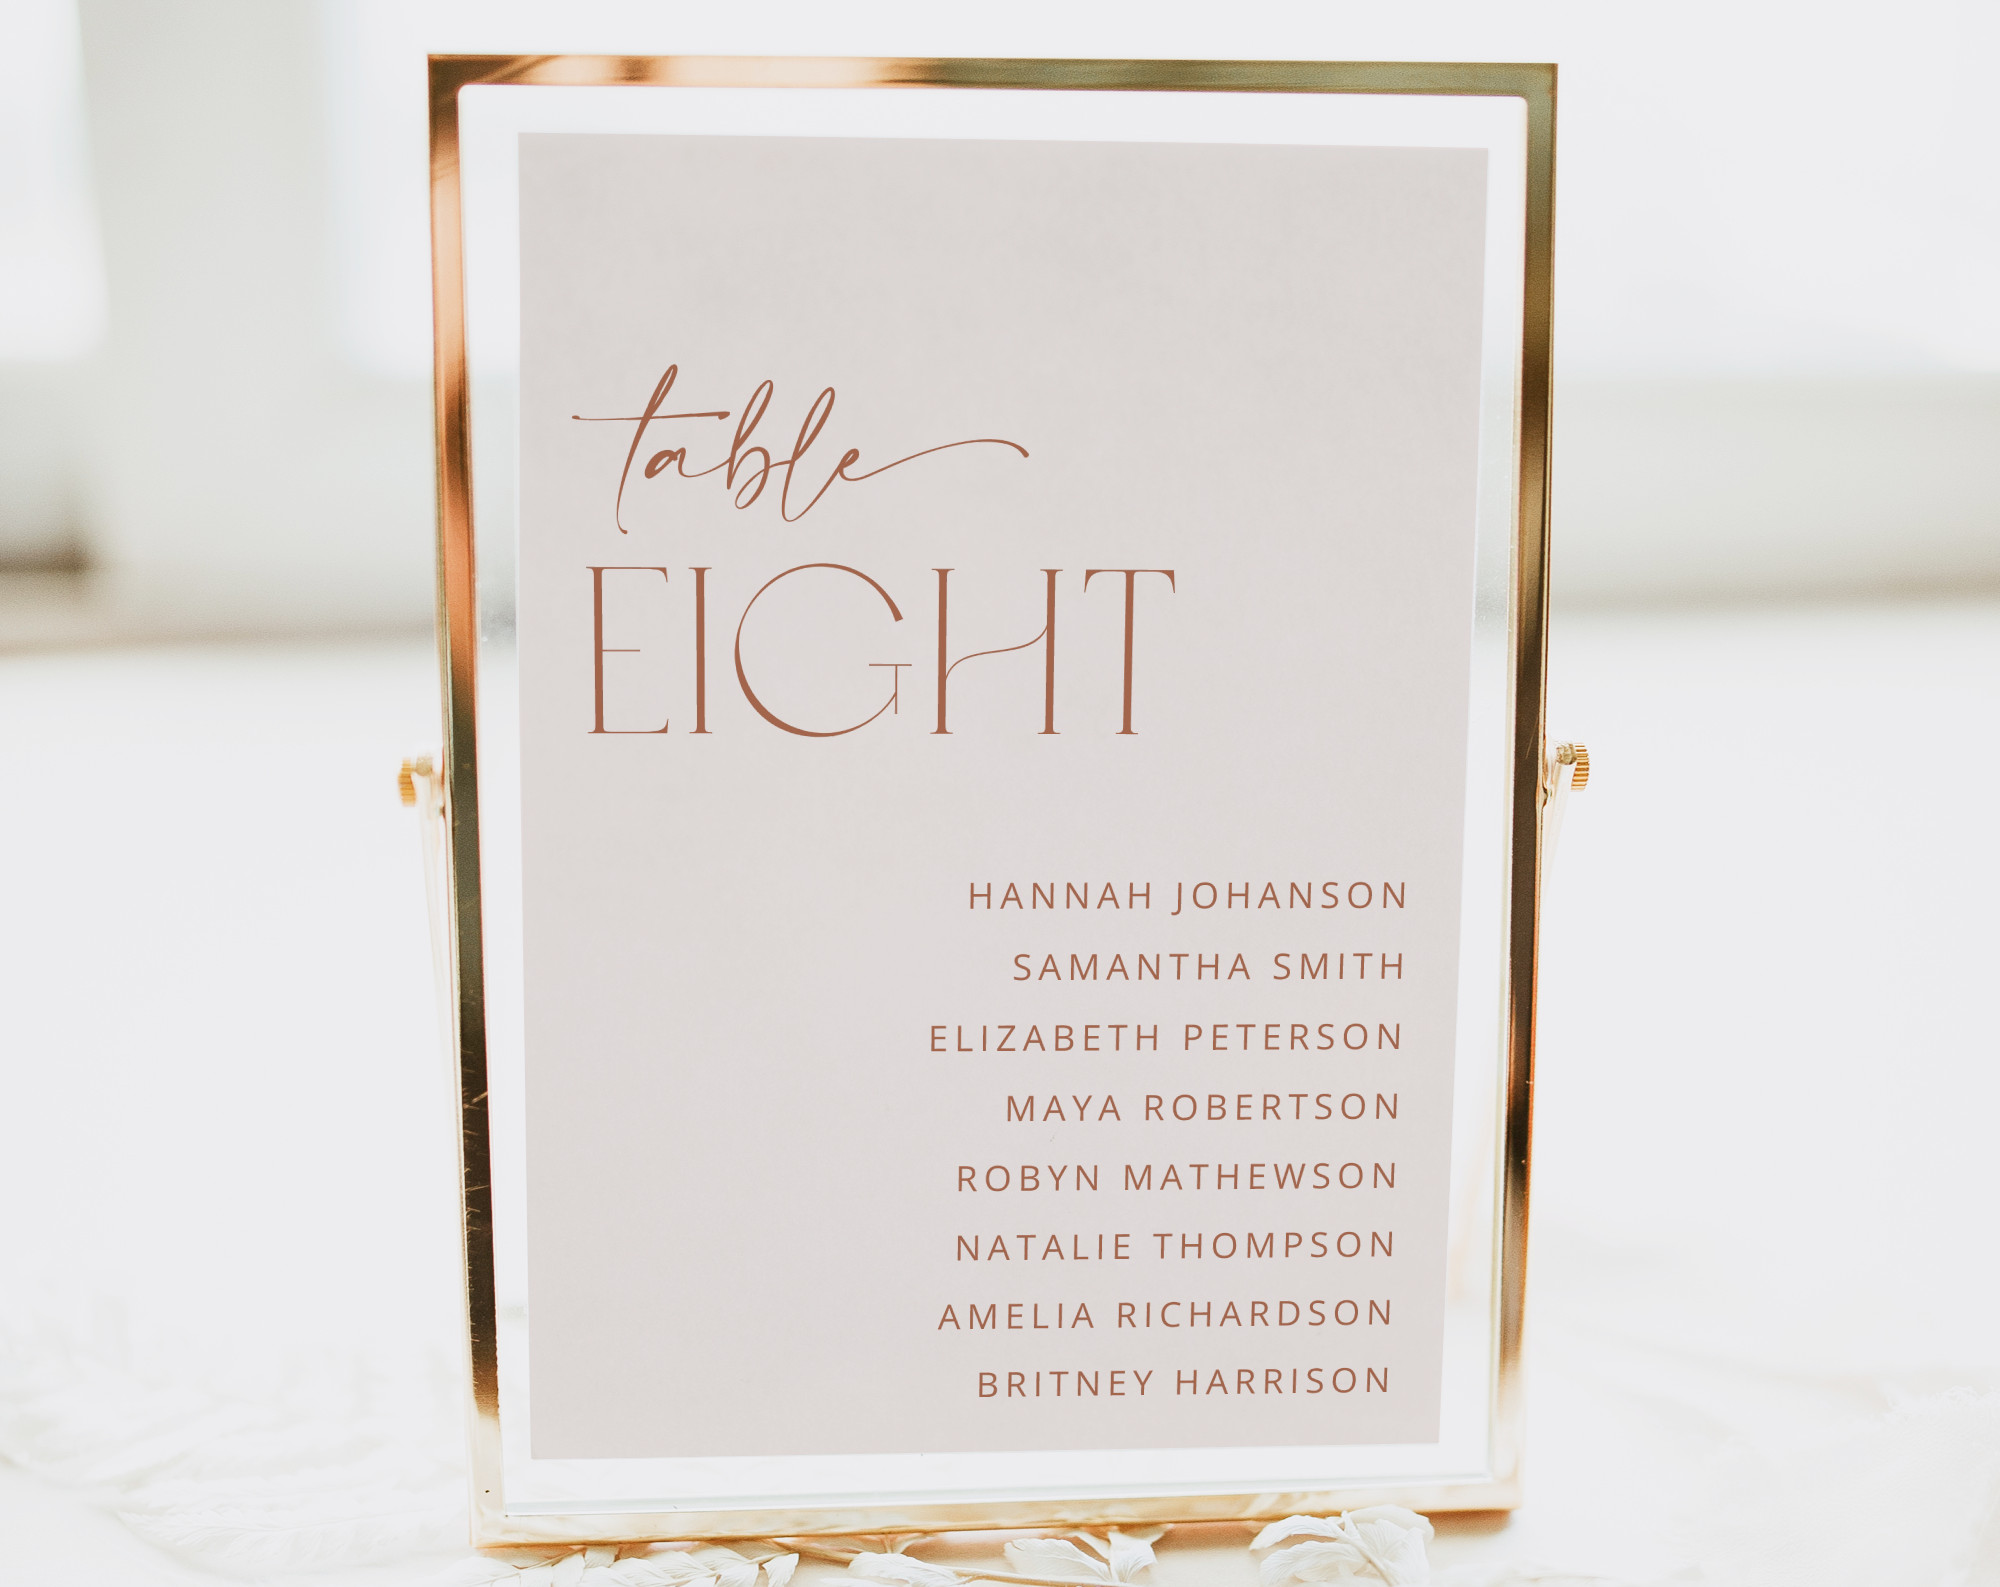 table
EIGHT
HANNAH JOHANSON
SAMANTHA SMITH
ELIZABETH PETERSON
MAYA ROBERTSON
ROBYN MATHEWSON
NATALIE THOMPSON
AMELIA RICHARDSON
BRITNEY HARRISON